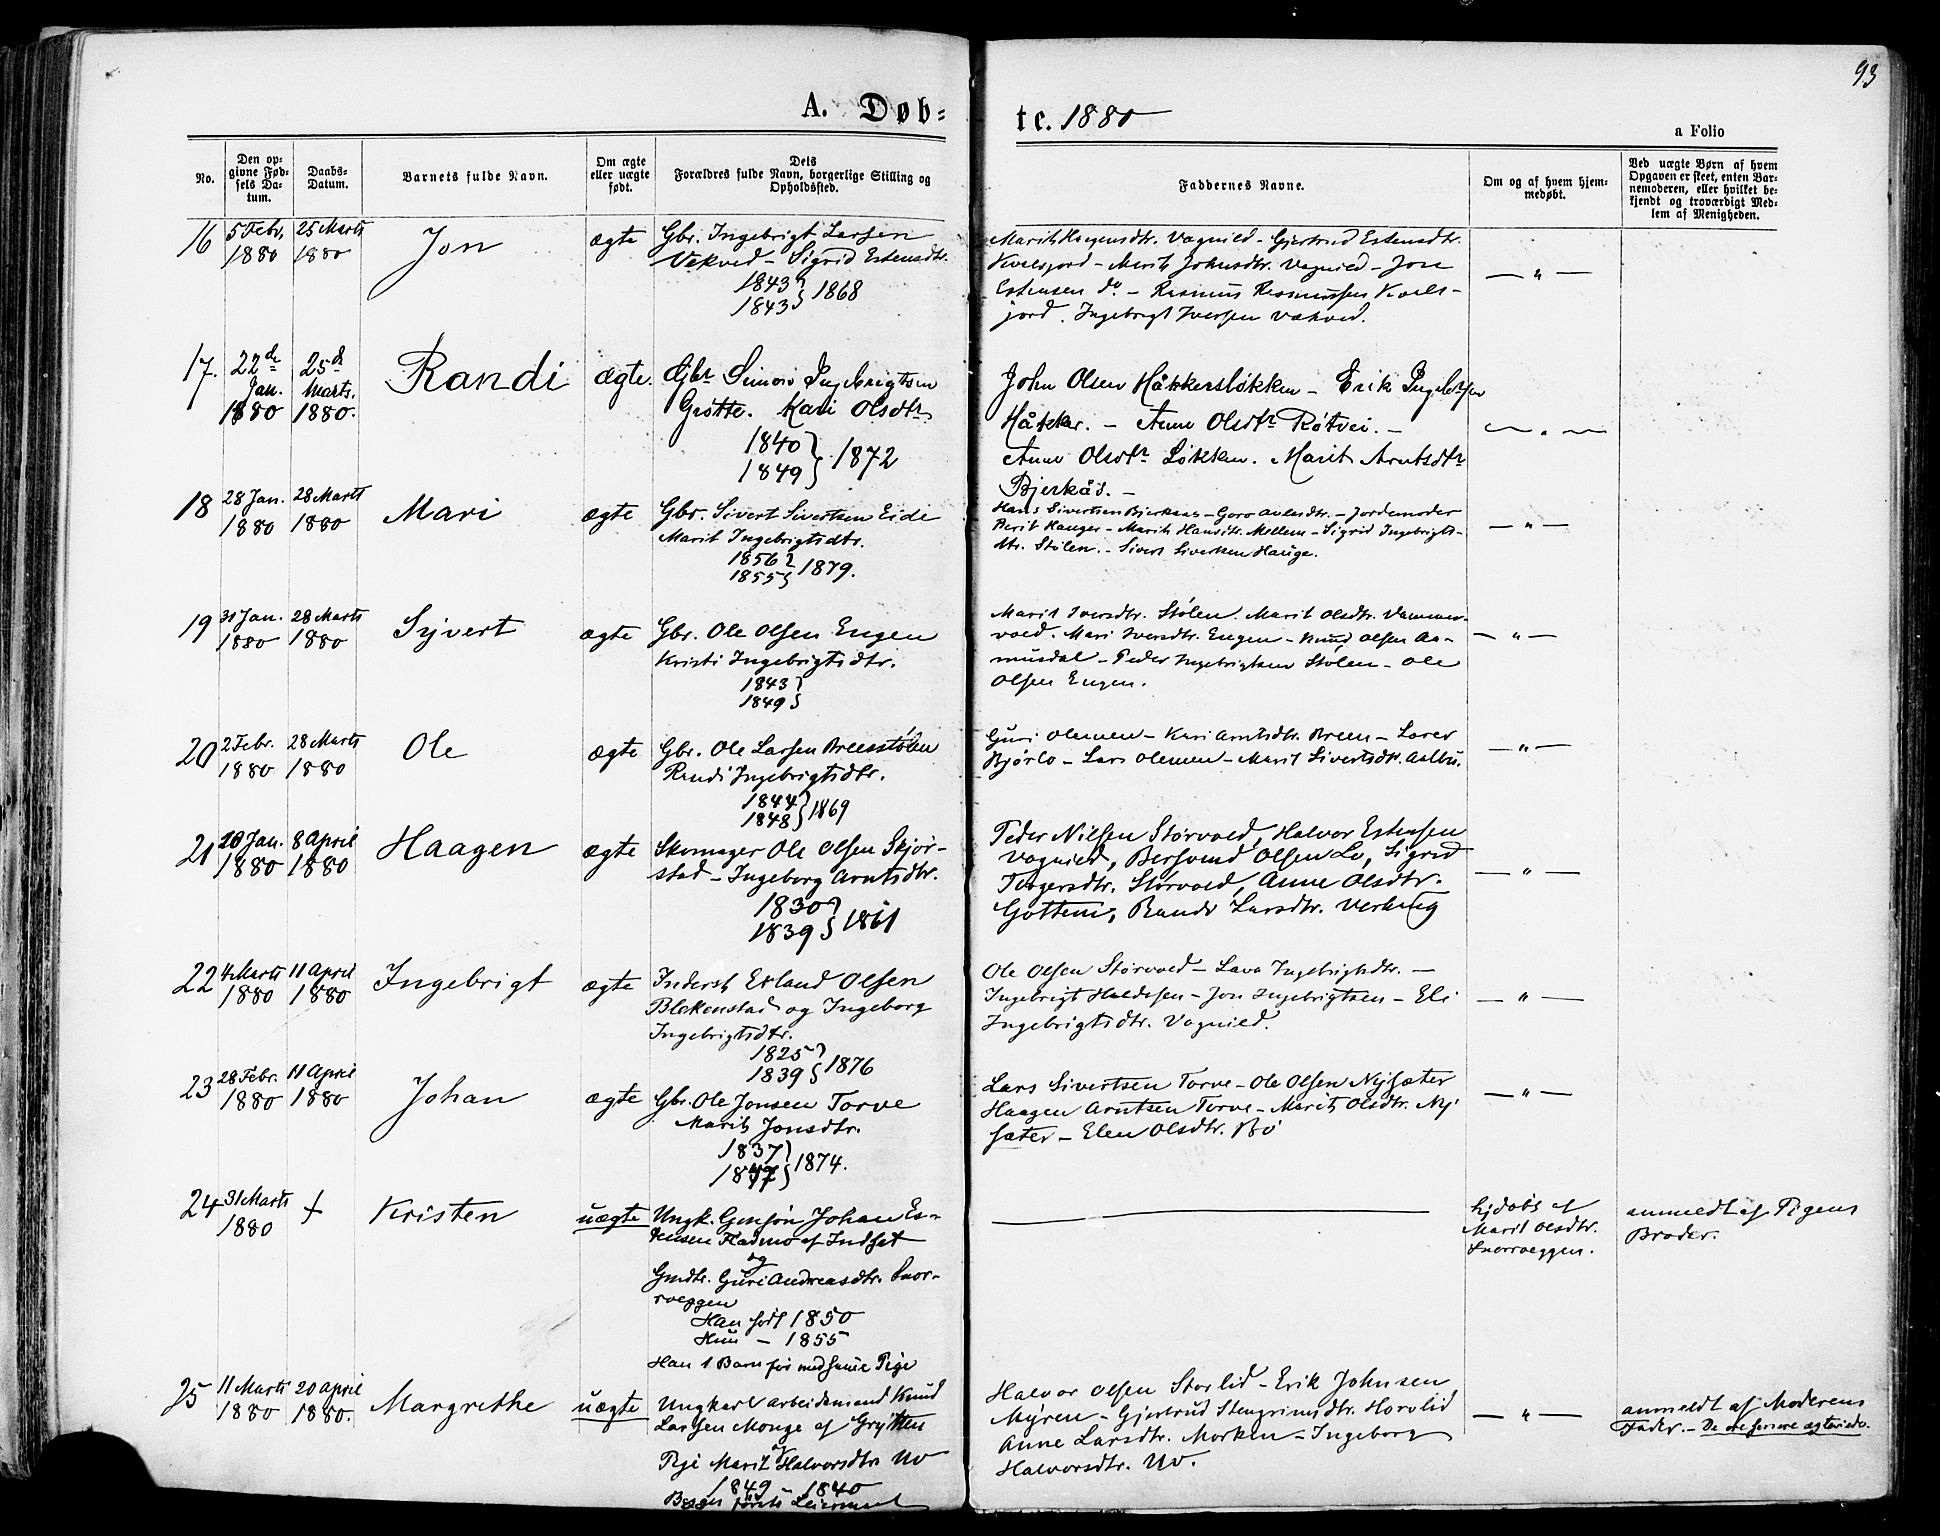 93
A. Døb-
te. 1880
a Folio
No.
Den op-
givne Fød-
sels Da-
tum.
Daabs-
Datum.
Barnets fulde Navn.
Om ægte
eller uægte
født.
Dets
Forældres fulde Navn, borgerlige Stilling og
Opholdssted.
Faddernes Navne.
Om og af hvem hjem-
medøbt.
Ved uægte Børn af hvem
Opgaven er skeet, enten Bar-
nemoderen, eller hvilket be-
kjendt og troværdigt Med-
lem af Menigheden.
16 5 Febr. 25 Marts Jon ægte Gbr. Ingebrigt Larsen
1880 1880 Vekved - Sigrid Estensdtr.
1843 } 1868
1843
Marit Haagensdtr. Vognild - Gjertrud Estensdtr.
Kvelsjord - Marit Johnsdtr. Vognild - Jon
Estensen do - Rasmus Rasmussen Kvels-
jord. Ingebrigt Iversen Vekved.
— " —
17. 22de 25d Randi ægte. Gbr Simon Ingebrigtsen
Jan. Marts. Grøtte. Kari Olsdtr
1880 1880.
1840 } 1872
1849
John Olsen Håkkersløkken - Erik Ingebrsen
Håkker. - Anne Olsdtr Røtvei. -
Anne Olsdtr Løkken. Marit Arntsdtr
Bjerkås. -
— " —
18 28 Jan. 28 Marts Mari ægte Gbr. Sivert Sivertsen Eide
1880 1880 Marit Ingebrigtsdtr.
1856 } 1879.
1855
Hans Sivertsen Bjerkaas - Goro dtr. - Jordemoder
Berit Hauger - Marit Hansdtr. Mellem - Sigrid Ingebrigts-
dtr. Stølen. - Sivert Sivertsen Hauge.
— " —
19 31 Jan. 28 Marts Sijvert ægte Gbr. Ole Olsen Engen
1880 1880 Kristi Ingebrigtsdtr.
1843 }
1849
Marit Iversdtr. Stølen. Marit Olsdtr. Vammer-
vold. Mari Iversdtr. Engen - Knud Olsen Aa-
musdal - Peder Ingebrigtsen Stølen - Ole
Olsen Engen.
— " —
20 2 Febr. 28 Marts Ole ægte Gbr. Ole Larsen Breesstølen
1880 1880 Randi Ingebrigtsdtr.
1844 } 1869
1848
Guri Olemoen - Kari Arntsdtr. Breen - Lærer
Bjørlo - Lars Olemoen - Marit Sivertsdtr. Aalbu.
— " —
21 20 Jan. 8 April Haagen ægte Skomager Ole Olsen Skjør-
1880 1880 stad - Ingeborg Arntsdtr.
1830 } 1861
1839
Peder Nilsen Størvold, Halvor Estensen
Vognild, Bersvend Olsen Lo, Sigrid
Torgersdtr. Størvold, Anne Olsdtr.
Gottem, Randi Larsdtr. Verking
— " —
22 4 Marts 11 April Ingebrigt ægte Inderst Erland Olsen
1880 1880 Blekenstad og Ingeborg
Ingebrigtsdtr.
1825 } 1876
1839
Ole Olsen Størvold - Lava Ingebrigtsdtr. —
Ingebrigt Haldosen - Jon Ingebrigtsen - Eli
Ingebrigtsdtr. Vognild.
— " —
23 28 Febr. 11 April Johan ægte Gbr. Ole Jonsen Torve
1880 1880 Marit Jonsdtr.
1837 } 1874.
Lars Sivertsen Torve - Ole Olsen Nysæter
Haagen Arntsen Torve - Marit Olsdtr. Ny-
sæter - Elen Olsdtr. Bö
— " —
24 31 Marts + Kristen uægte Ungk. Gmsøn Johan Es-
1880 tensen Fladmo af Indset
og
Gmdtr. Guri Andreasdtr. Snor-
roeggen
Han født 1850
Hun - 1855
Han 1 Barn før med samme Pige
hjdøbt af
Marit Olsdtr.
Snorroeggen.
anmeldt af Pigens
Broder.
25 11 Marts 20 April Margrethe uægte Ungkarl Arbeidsmand Knud
1880 1880. Larsen Monge af Grytten
Pige Marit Halvorsdtr. Uv
1849 - 1840
Begges første Leiermaal
Halvor Olsen Storlid - Erik Johnsen
Myren - Gjertrud Stengrimsdtr. Horvlid
Anne Larsdtr. Morken - Ingeborg
Halvorsdtr. Uv.
— " —
anmeldt af Moderens
Fader. - De ere senere ægteviede.